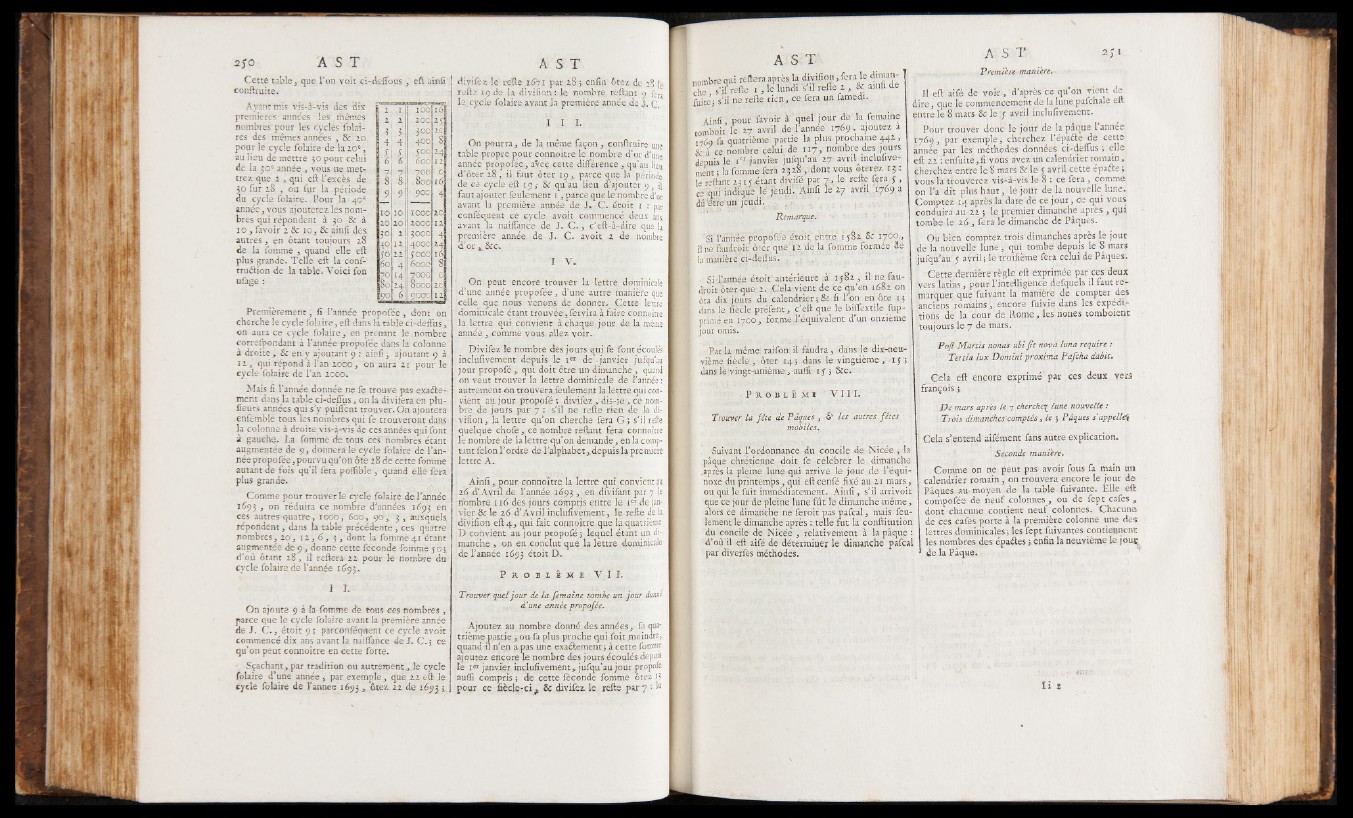 250 A S T
Cette table, que l'on voit ci-dessous, est ainsi
construite.
Ayant mis vis-à-vis des dix
premieres années les mêmes
nombres pour les cycles solai-
res des mêmes années, & 20
pour le cycle solaire de la 20e,
au lieu de mettre 30 pour celui
de la 30e année, vous ne met-
trez que 2, qui est l'excès de
30 sur 28, ou sur la période
du cycle solaire. Pour la 40e
année, vous ajouterez les nom-
bres qui répondent à 30 & à
10, savoir 2 & 10, & ainsi des
autres, en ôtant toujours 28
de la somme, quand elle est
plus grande. Telle est la cons-
truction de la table. Voici son
usage :
1 1 100 16
2 2 200
3 3 300 20
4 4 400 8
5 5 500 24
6 6 600 12
7 7 700 0
8 8 800 16
9 9 900 4
10 10 1000 20
20 20 2000 12
30 2 3000 4
40 12 4000 24
50 22 5000 16
60 4 6000 8
70 14 7000 0
80 24 8000 20
90 6 9000 12
Premièrement, si l'année proposée, dont on
cherche le cycle solaire, est dans la table ci-dessus,
on aura ce cycle solaire, en prenant le nombre
correspondant à l'année proposée dans la colonne
à droite, & en y ajoutant 9 : ainsi, ajoutant 9 à
12, qui répond à l'an 2000, on aura 21 pour le
cycle solaire de l'an 2000.
Mais si l'année donnée ne se trouve pas exacte-
ment dans la table ci-dessus, on la divisera en plu-
sieurs années qui s'y puissent trouver. On ajoutera
ensemble tous les nombres qui se trouveront dans
la colonne à droite vis-à-vis de ces années qui sont
à gauche. La somme de tous ces nombres étant
augmentée de 9, donnera le cycle solaire de l'an-
née proposée, pourvu qu'on ôte 28 de cette somme
autant de fois qu'il sera possible, quand elle sera
plus grande.
Comme pour trouver le cycle solaire de l'année
1693, on réduira ce nombre d'années 1693 en
ces autres quatre, 1000, 600, 90, 3, auxquels
répondent, dans la table précédente, ces quatre
nombres, 20, 12, 6, 3, dont la somme 41 étant
augmentée de 9, donne cette seconde somme 50;
d'où ôtant 28, il restera 22 pour le nombre du
cycle solaire de l'année 1693.
I I.
On ajoute 9 à la somme de tous ces nombres,
parce que le cycle solaire avant la première année
de J. C., étoit 9 : parconséquent ce cycle avoit
commencé dix ans avant la naissance de J. C.; ce
qu'on peut connoître en cette sorte.
Sçachant, par tradition ou autrement, le cycle
solaire d'une année, par exemple, que 22 est le
cycle solaire de l'année 1693, ôtez 22 de 1693;
A S T
divisez le reste 1671 par 28; enfin ôtez de 28 le
reste 19 de la division : le nombre restant 9 sera
le cycle solaire avant la première année de J. C.
I I I.
On pourra, de la même façon, construire une
table propre pour connoître le nombre d'or d'une
année proposée, avec cette différence, qu'au lieu
d'ôter 28, il faut ôter 19, parce que la période
de ce cycle est 19; & qu'au lieu d'ajouter 9, il
faut ajouter seulement 1, parce que le nombre d'or
avant la première année de J. C. étoit 1 : par
conséquent ce cycle avoit commencé deux ans
avant la naissance de J. C., c'est-à-dire que la
première année de J. C. avoit 2 de nombre
d'or, &c.
I V.
On peut encore trouver la lettre dominicale
d'une année proposée, d'une autre manière que
celle que nous venons de donner. Cette lettre
dominicale étant trouvée, servira à faire connoître
la lettre qui convient à chaque jour de la même
année, comme vous allez voir.
Divisez le nombre des jours qui se sont écoulés
inclusivement depuis le 1er de janvier jusqu'au
jour proposé, qui doit être un dimanche, quand
on veut trouver la lettre dominicale de l'année :
autrement on trouvera seulement la lettre qui con-
vient au jour proposé; divisez, dis-je, ce nom-
bre de jours par 7 : s'il ne reste rien de la di-
vision, la lettre qu'on cherche sera G; s'il reste
quelque chose, ce nombre restant sera connoître
le nombre de la lettre qu'on demande, en la comp-
tant selon l'ordre de l'alphabet, depuis la premiere
lettre A.
Ainsi, pour connoître la lettre qui convient au
26 d'Avril de l'année 1693, en divisant par 7 le
nombre 116 des jours compris entre le 1er de jan-
vier & le 26 d'Avril inclusivement, le reste de la
division est 4, qui fait connoître que la quatrième
D convient au jour proposé; lequel étant un di-
manche, on en conclut que la lettre dominicale
de l'année 1693 étoit D.
PROBLÈME VII.
Trouver quel jour de la semaine tombe un jour donné
d'une année proposée.
Ajoutez au nombre donné des années, sa qua-
trième partie, ou sa plus proche qui soit moindre,
quand il n'en a pas une exactement; à cette somme
ajoutez encore le nombre des jours écoulés depuis
le 1er janvier inclusivement, jusqu'au jour proposé
aussi compris; de cette seconde somme ôtez 13
pour ce siècle-ci, & divisez le reste par 7 : le
A S T
nombre qui restera après la division, sera le diman-
che, s'il reste 1, le lundi s'il reste 2, & ainsi de
suite; s'il ne reste rien, ce sera un samedi.
Ainsi, pour savoir à quel jour de la semaine
tomboit le 27 avril de l'année 1769, ajoutez à
1769 sa quatrième partie la plus prochaine 442,
& à ce nombre celui de 117, nombre des jours
depuis le 1er janvier jusqu'au 27 avril inclusive-
ment; la somme sera 2328, dont vous ôterez 13 :
le restant 2315 étant divisé par 7, le reste sera 5,
ce qui indique le jeudi. Aussi le 27 avril 1769 a
dû être un jeudi.
Remarque.
Si l'année proposée étoit entre 1582 & 1700,
il ne faudroit ôter que 12 de la somme formée de
la manière ci-dessus.
Si l'année étoit antérieure à 1582, il ne fau-
droit ôter que 2. Cela vient de ce qu'en 1682 on
ôta dix jours du calendrier; & si l'on en ôte 13
dans le siècle présent, c'est que le bissextile sup-
primé en 1700, forme l'équivalent d'un onzième
jour omis.
Par la même raison il faudra, dans le dix-neu-
vième siècle, ôter 14; dans le vingtième, 15;
dans le vingt-unième, aussi 15; &c.
PROBLÈME VIII.
Trouver la fête de Pâques, & les autres fêtes
mobiles.
Suivant l'ordonnance du concile de Nicée, la
pâque chrétienne doit se célébrer le dimanche
après la pleine lune qui arrive le jour de l'équi-
noxe du printemps, qui est censé fixé au 21 mars,
ou qui le suit immédiatement. Ainsi, s'il arrivoit
que ce jour de pleine lune fût le dimanche même,
alors ce dimanche ne seroit pas pascal, mais seu-
lement le dimanche après : telle fut la constitution
du concile de Nicée, relativement à la pâque :
d'où il est aisé de déterminer le dimanche pascal
par diverses méthodes.
A S T 251
Première manière.
Il est aisé de voir, d'après ce qu'on vient de
dire, que le commencement de la lune paschale est
entre le 8 mars & le 5 avril inclusivement.
Pour trouver donc le jour de la pâque l'année
1769, par exemple, cherchez l'épacte de cette
année par les méthodes données ci-dessus; elle
est 22 : ensuite, si vous avez un calendrier romain,
cherchez entre le 8 mars & le 5 avril cette épacte;
vous la trouverez vis-à-vis le 8 : ce sera, comme
on l'a dit plus haut, le jour de la nouvelle lune.
Comptez 14 après la date de ce jour, ce qui vous
conduira au 22; le premier dimanche après, qui
tombe le 26, sera le dimanche de Pâques.
Ou bien comptez trois dimanches après le jour
de la nouvelle lune, qui tombe depuis le 8 mars
jusqu'au 5 avril; le troisième sera celui de Pâques.
Cette dernière règle est exprimée par ces deux
vers latins, pour l'intelligence desquels il faut re-
marquer que suivant la manière de compter des
anciens romains, encore suivie dans les expédi-
tions de la cour de Rome, les nones tomboient
toujours le 7 de mars.
Post Martis nonas ubi sit nova luna require :
Tertia lux Domini proxima Pascha dabit.
Cela est encore exprimé par ces deux vers
françois;
De mars après le 7 cherchez lune nouvelle :
Trois dimanches comptés, le 3 Pâques s'appelle.
Cela s'entend aisément sans autre explication.
Seconde manière.
Comme on ne peut pas avoir sous sa main un
calendrier romain, on trouvera encore le jour de
Pâques au moyen de la table suivante. Elle est
composée de neuf colonnes, ou de sept cases,
dont chacune contient neuf colonnes. Chacune
de ces cases porte à la première colonne une des
lettres dominicales; les sept suivantes contiennent
les nombres des épactes; enfin la neuvième le jour
de la Pâque.
Ii 2